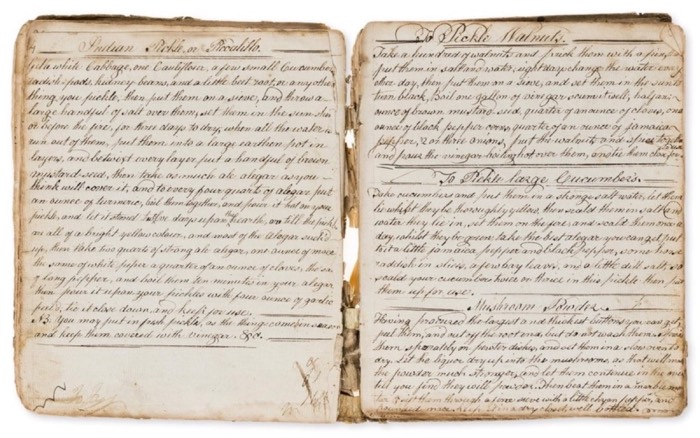 Indian Pickle, or Piccalillo.
white Cabbage, one Cauliflower, a few small Cucumbers
radish-pods, kidney beans, and a little beet root, or any other
thing you pickle, then put them on a sieve, and throw a
large handful of salt over them, set them in the sun-shin
or before the fire, for three days to dry, when all the water is
run out of them, put them into a large earthen pot in
layers, and betwixt every layer put a handful of brown
mustard seed, then take as much ale alegar as you
think will cover it, and to every four quarts of alegar put
an ounce of turmeric, boil them together, and pour it hot on your
pickle, and let it stand twelve days upon the hearth, or till the pickle
are all of a bright yellow colour, and most of the alegar suck'd
up, then take two quarts of strong ale alegar, one ounce of mace
the same of white pepper a quarter of an ounce of cloves, the same
of long pepper, and boil them ten minutes in your alegar
then pour it upon your pickles with four ounces of garlic
peel'd, tie it close down, and keep for use.
NB. You may put in fresh pickle, as the things come in season
and keep them covered with vinegar &c.
To Pickle Walnuts.
Take a hundred of walnuts and prick them with a pin
put them in salt and water, eight days, change the water every
other day, then put them on a sieve, and set them in the sun to
turn black, boil one gallon of vinegar, scum it well, half an
ounce of brown mustard seed, quarter of an ounce of cloves, one
ounce of black pepper corns, quarter of an ounce of jamaica
pepper, 2 or three onions, put the walnuts and spice
and pour the vinegar boiling hot over them, and tie them close for
To Pickle large Cucumbers.
Take cucumbers and put them in a strong salt water, let them
lie whilst they be thoroughly yellow, then scald them in salt and
water they lie in, set them on the fire, and scald them once a
day whilst they be green, take the best alegar you can get, put
to it a little jamaica pepper and black pepper, some horse
raddish in slices, a few bay leaves, and a little dill salt, so
scald your cucumbers twice or three in this pickle then put
them up for use.
Mushroom Powder
Having procured the largest and thickest buttons you can get
peel them, and cut off the root end, but do not wash them, spread
them separately on pewter dishes, and set them in a slow oven to
dry. Let the liquor dry up into the mushrooms, as that will make
the powder much stronger, and let them continue in the oven
till you find they will powder, then beat them in a marble mor-
tar & sift them through a sieve with a little chyan pepper,
keep it in a dry closet, well bottled